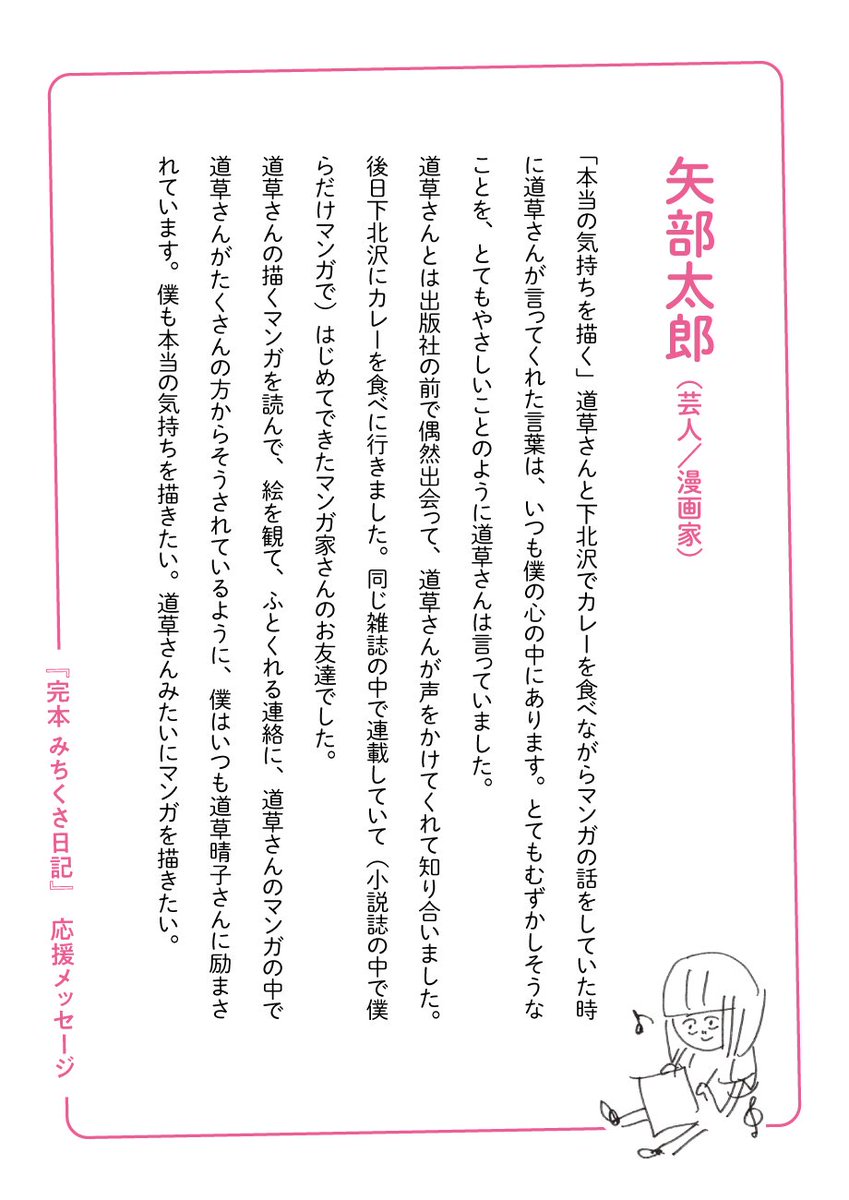 矢部太郎(芸人/漫画家)
「本当の気持ちを描く」道草さんと下北沢でカレーを食べながらマンガの話をしていた時
に道草さんが言ってくれた言葉は、いつも僕の心の中にあります。とてもむずかしそうな
ことを、とてもやさしいことのように道草さんは言っていました。
道草さんとは出版社の前で偶然出会って、道草さんが声をかけてくれて知り合いました。
後日下北沢にカレーを食べに行きました。同じ雑誌の中で連載していて(小説誌の中で僕
らだけマンガで)はじめてできたマンガ家さんのお友達でした。
道草さんの描くマンガを読んで、絵を観て、ふとくれる連絡に、道草さんのマンガの中で
道草さんがたくさんの方からそうされているように、僕はいつも道草晴子さんに励まさ
れています。僕も本当の気持ちを描きたい。道草さんみたいにマンガを描きたい。
『完本 みちくさ日記』 応援メッセージ